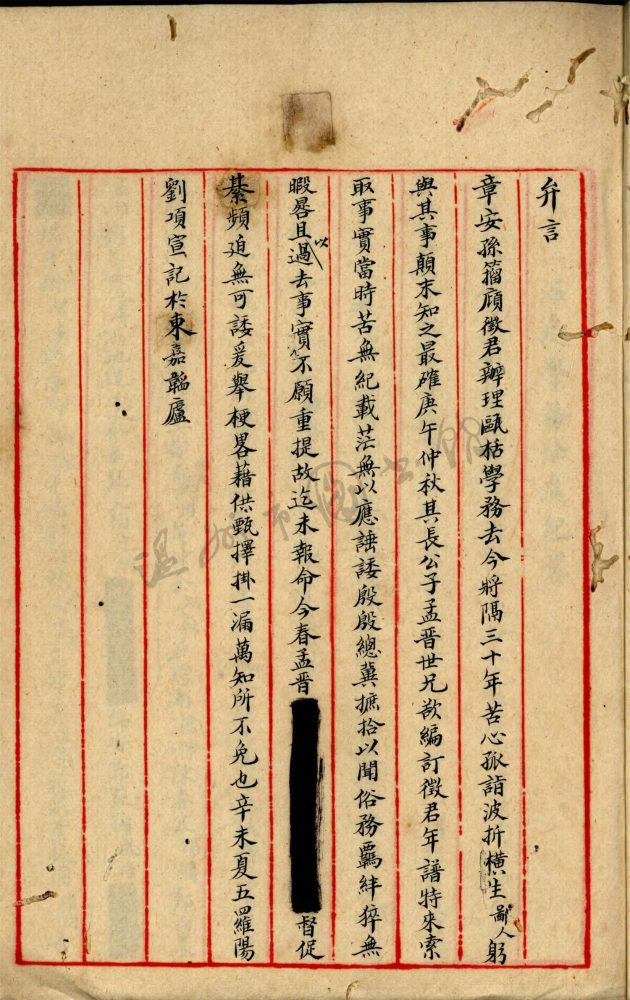 弁言
章安孫籀廎徵君辦理甌栝學務去今將隔三十年苦心孤詣波折横生鄙人躬
與其事顛末知之最確庚午仲秋其長公子孟晋世兄欲編訂徵君年譜特來索
取事實當時苦無紀載茫無以應諈諉殷殷總冀摭拾以聞俗務羈絆猝無
暇晷且以過去事實不願重提故迄未報命今春孟晋督促
綦頻迫無可諉爰舉梗畧藉供甄擇掛一漏萬知所不免也辛未夏五羅陽
劉項宣記於東嘉韜廬
温州市圖書館